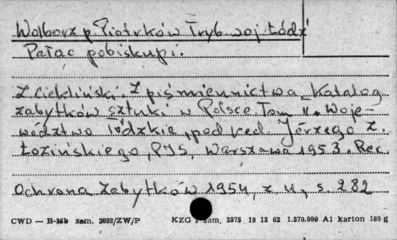 Wolborz p. Piotrków Tryb. woj. Łódź
Pałac pobiskupi.
Z. Ciekliński. Z piśmiennictwa "Katalog
zabytków sztuki w Polsce Tom II. Woje-
wództwo łódzkie, pod red. Jerzego Z.
Łozińskiego, PIS, Warszawa 1953. Rec.
Ochrona Zabytków 1954, z 4, s. 282
CWD — B-16b zam. 2692/ZW/P KZG 1 zam. 2375 19 12 62 1.570.000 A1 karton 180 g